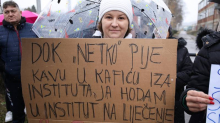 DOK „NETKO" PIJE
KAVU U KAFIĆU IZA
INSTITUTA, JA HODAM
U INSTITUT NA LIJEČENJE